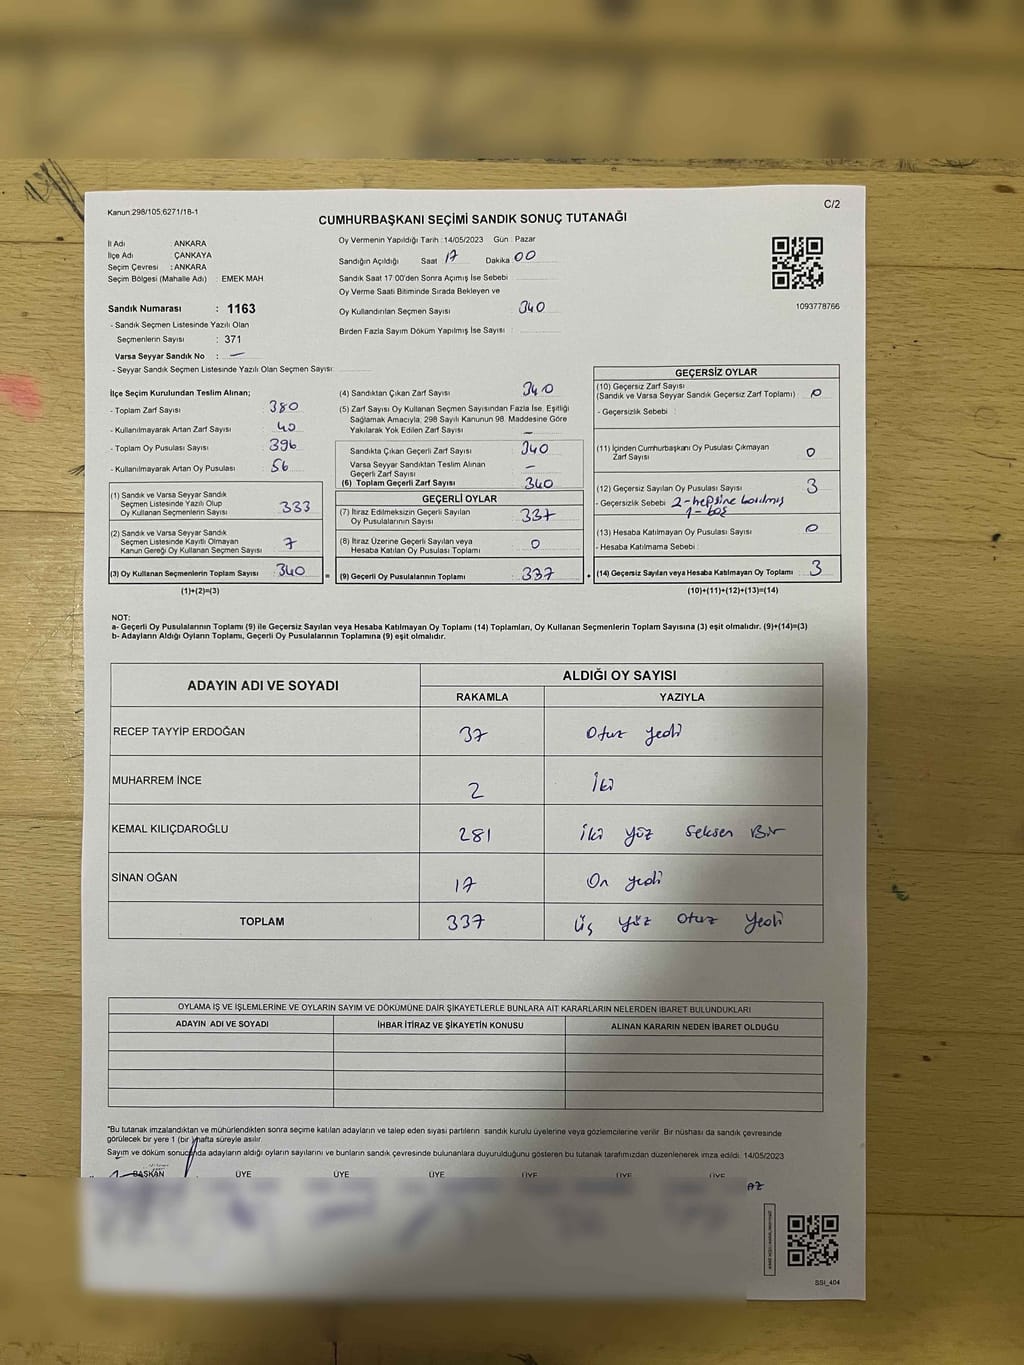 Kanun:298/105,6271/18-1
C/2
CUMHURBAŞKANI SEÇİMİ SANDIK SONUÇ TUTANAĞI
İl Adı : ANKARA
İlçe Adı : ÇANKAYA
Seçim Çevresi : ANKARA
Seçim Bölgesi (Mahalle Adı) : EMEK MAH
Sandık Numarası : 1163
- Sandık Seçmen Listesinde Yazılı Olan
Seçmenlerin Sayısı : 371
Varsa Seyyar Sandık No : —
- Seyyar Sandık Seçmen Listesinde Yazılı Olan Seçmen Sayısı:
Oy Vermenin Yapıldığı Tarih : 14/05/2023 Gün : Pazar
Sandığın Açıldığı Saat 17 Dakika 00
Sandık Saat 17:00'den Sonra Açımış İse Sebebi
Oy Verme Saati Bitiminde Sırada Bekleyen ve
Oy Kullandırılan Seçmen Sayısı : 340
Birden Fazla Sayım Döküm Yapılmış İse Sayısı :
1093778766
İlçe Seçim Kurulundan Teslim Alınan;
- Toplam Zarf Sayısı : 380
- Kullanılmayarak Artan Zarf Sayısı : 40
- Toplam Oy Pusulası Sayısı : 396
- Kullanılmayarak Artan Oy Pusulası : 56
(1) Sandık ve Varsa Seyyar Sandık
Seçmen Listesinde Yazılı Olup
Oy Kullanan Seçmenlerin Sayısı : 333
(2) Sandık ve Varsa Seyyar Sandık
Seçmen Listesinde Kayıtlı Olmayan
Kanun Gereği Oy Kullanan Seçmen Sayısı : 7
(3) Oy Kullanan Seçmenlerin Toplam Sayısı : 340
(1)+(2)=(3)
(4) Sandıktan Çıkan Zarf Sayısı : 340
(5) Zarf Sayısı Oy Kullanan Seçmen Sayısından Fazla İse, Eşitliği
Sağlamak Amacıyla; 298 Sayılı Kanunun 98. Maddesine Göre
Yakılarak Yok Edilen Zarf Sayısı : —
Sandıkta Çıkan Geçerli Zarf Sayısı : 340
Varsa Seyyar Sandıktan Teslim Alınan
Geçerli Zarf Sayısı : —
(6) Toplam Geçerli Zarf Sayısı : 340
GEÇERLİ OYLAR
(7) İtiraz Edilmeksizin Geçerli Sayılan
Oy Pusulalarının Sayısı : 337
(8) İtiraz Üzerine Geçerli Sayılan veya
Hesaba Katılan Oy Pusulası Toplamı : 0
= (9) Geçerli Oy Pusulalarının Toplamı : 337 +
GEÇERSİZ OYLAR
(10) Geçersiz Zarf Sayısı
(Sandık ve Varsa Seyyar Sandık Geçersiz Zarf Toplamı) : 0
- Geçersizlik Sebebi :
(11) İçinden Cumhurbaşkanı Oy Pusulası Çıkmayan
Zarf Sayısı : 0
(12) Geçersiz Sayılan Oy Pusulası Sayısı : 3
- Geçersizlik Sebebi 2-hepsine basılmış
1-boş
(13) Hesaba Katılmayan Oy Pusulası Sayısı : 0
- Hesaba Katılmama Sebebi :
(14) Geçersiz Sayılan veya Hesaba Katılmayan Oy Toplamı : 3
(10)+(11)+(12)+(13)=(14)
NOT:
a- Geçerli Oy Pusulalarının Toplamı (9) ile Geçersiz Sayılan veya Hesaba Katılmayan Oy Toplamı (14) Toplamları, Oy Kullanan Seçmenlerin Toplam Sayısına (3) eşit olmalıdır. (9)+(14)=(3)
b- Adayların Aldığı Oyların Toplamı, Geçerli Oy Pusulalarının Toplamına (9) eşit olmalıdır.
ADAYIN ADI VE SOYADI
ALDIĞI OY SAYISI
RAKAMLA YAZIYLA
RECEP TAYYİP ERDOĞAN 37 Otuz yedi
MUHARREM İNCE 2 İki
KEMAL KILIÇDAROĞLU 281 İki yüz Seksen Bir
SİNAN OĞAN 17 On yedi
TOPLAM 337 Üç Yüz Otuz Yedi
OYLAMA İŞ VE İŞLEMLERİNE VE OYLARIN SAYIM VE DÖKÜMÜNE DAİR ŞİKAYETLERLE BUNLARA AİT KARARLARIN NELERDEN İBARET BULUNDUKLARI
ADAYIN ADI VE SOYADI İHBAR İTİRAZ VE ŞİKAYETİN KONUSU ALINAN KARARIN NEDEN İBARET OLDUĞU
*Bu tutanak imzalandıktan ve mühürlendikten sonra seçime katılan adayların ve talep eden siyasi partilerin sandık kurulu üyelerine veya gözlemcilerine verilir. Bir nüshası da sandık çevresinde
görülecek bir yere 1 (bir) hafta süreyle asılır.
Sayım ve döküm sonucunda adayların aldığı oyların sayılarını ve bunların sandık çevresinde bulunanlara duyurulduğunu gösteren bu tutanak tarafımızdan düzenlenerek imza edildi. 14/05/2023
BAŞKAN ÜYE ÜYE ÜYE ÜYE ÜYE ÜYE
AZ
SSI_404